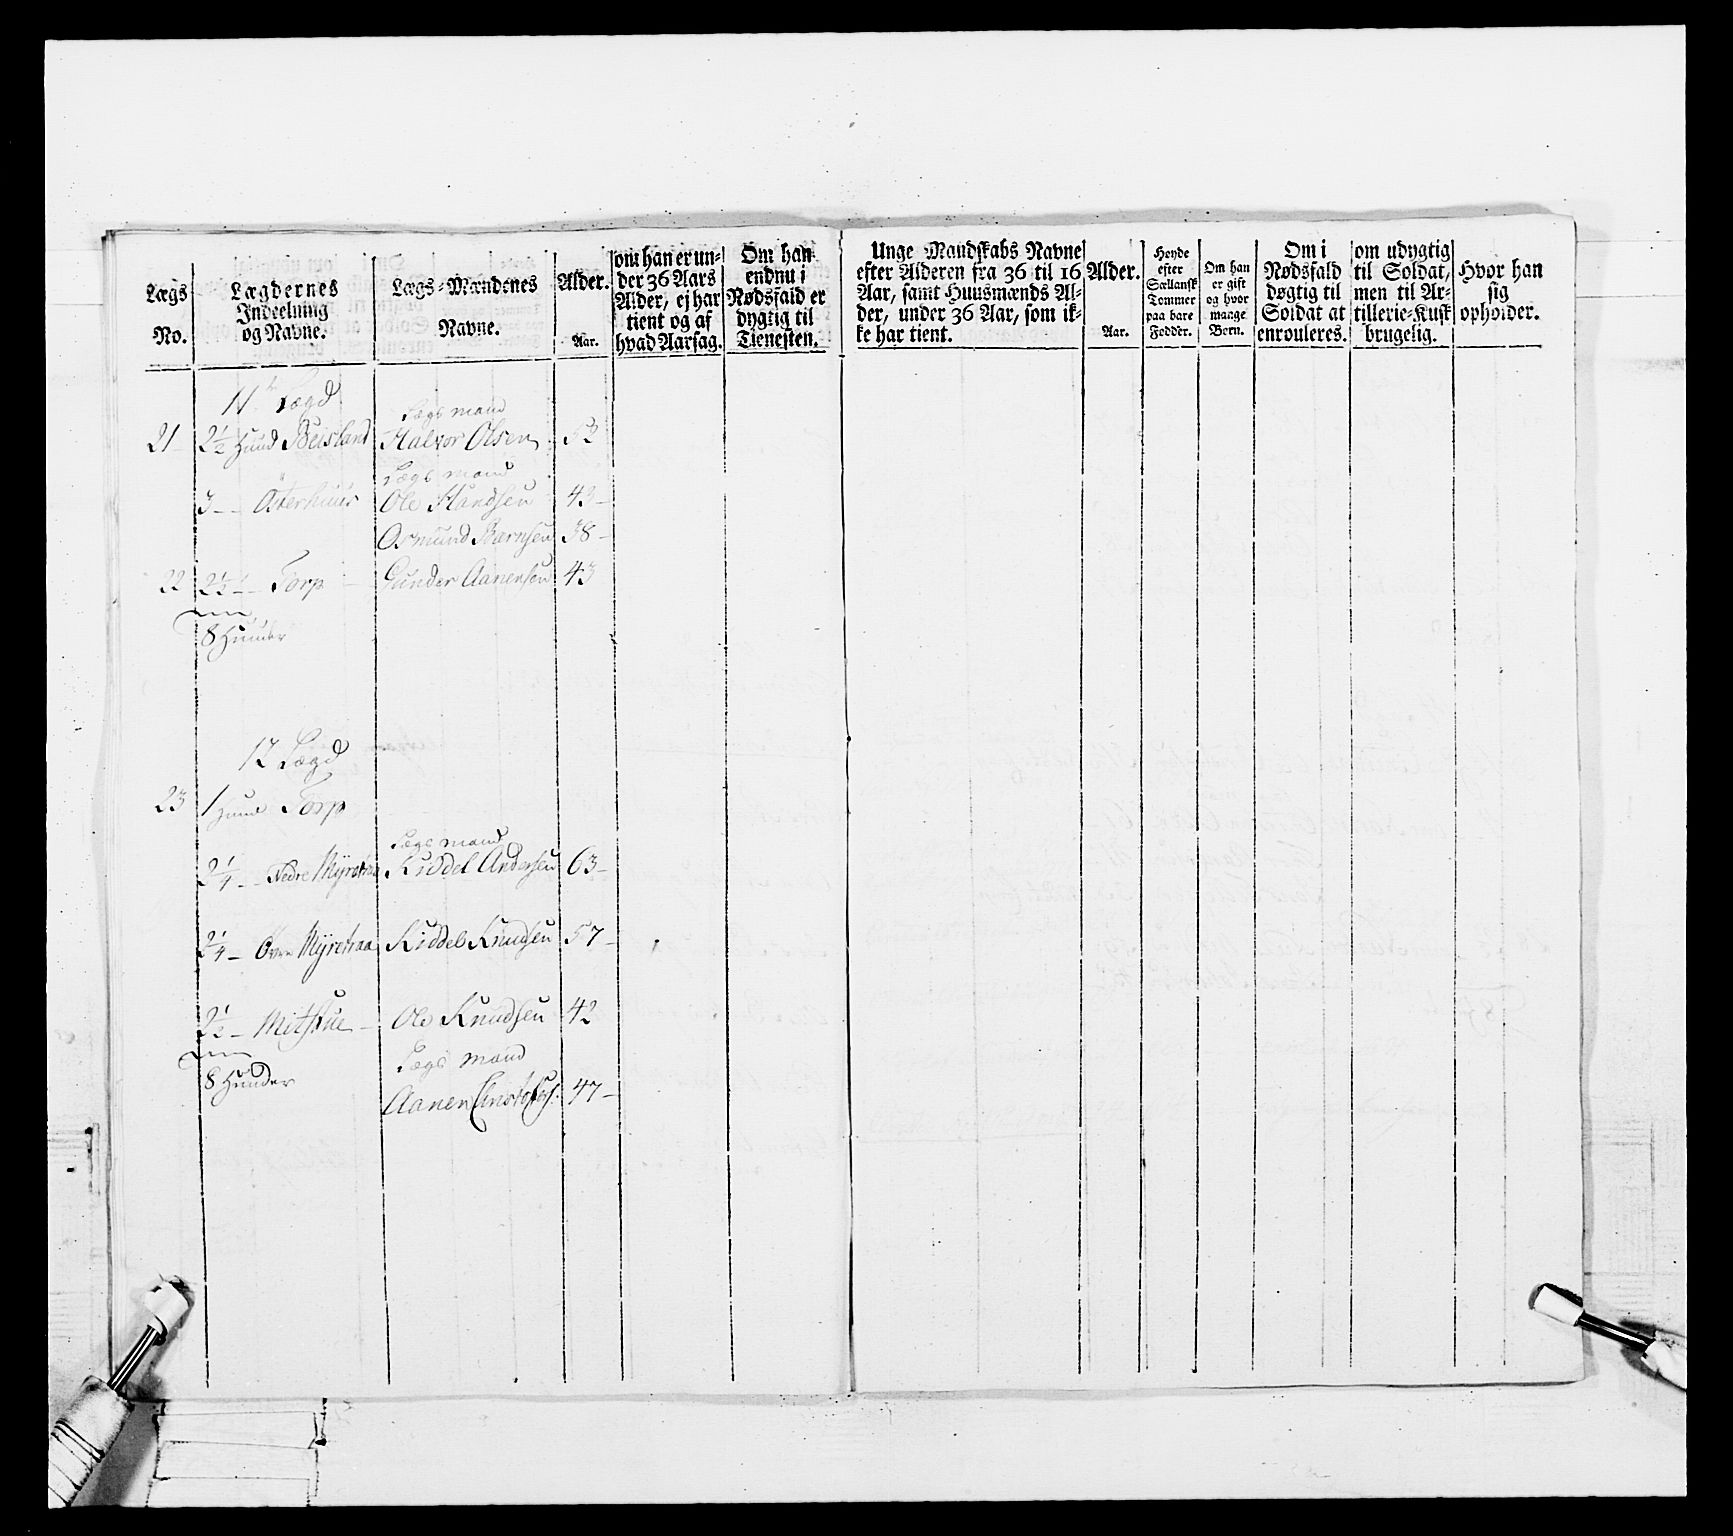 Lægs No.
Lægdernes Indeelning og Navne.
Lægs-Mændenes Navne.
Alder. Aar.
om han er under 36 Aars Alder, ej har tient og af hvad Aarsag.
Om han endnu i Nødsfald er dygtig til Tienesten.
Unge Mandskabs Navne efter Alderen fra 36 til 16 Aar, samt Huusmænds Alder, under 36 Aar, som ikke har tient.
Alder. Aar.
Høyde efter Sællansk Tommer paa bare Fødder.
Om han er gift og hvor mange Børn.
Om i Nødsfald døgtig til Soldat at enrouleres.
om udygtig til Soldat, men til Artillerie-Kusk brugelig.
Hvor han sig opholder.
11te Lægd
Lægs mand
21 2½ Hund Beisland Halvor Olsen 52
Lægs mand
3 - Österhuus Ole Handsen 43
Osmund Barnsen 38
22 2½ - Torp Gunder Aanensen 43
8 Hunder
12 Lægd
23 1 Hund Torp
Lægs mand
2¼ - Nedre Myretraa Kiddel Andersen 63
2¼ - Övre Myretraa Kiddel Knudsen 57
2½ - Mitstue Ole Knudsen 42
Lægs mand
8 Hunder
Aanen 47